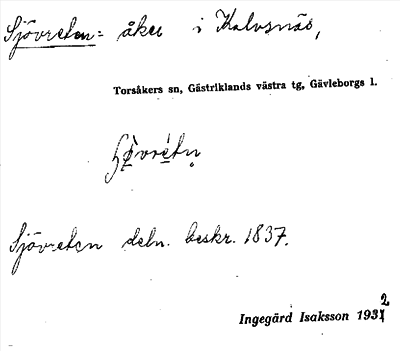 Sjövreten = åker i Kalvsnäs,
Torsåkers sn, Gästriklands västra tg, Gävleborgs l.
Sjövreten deln. beskr. 1837.
Ingegärd Isaksson 1932